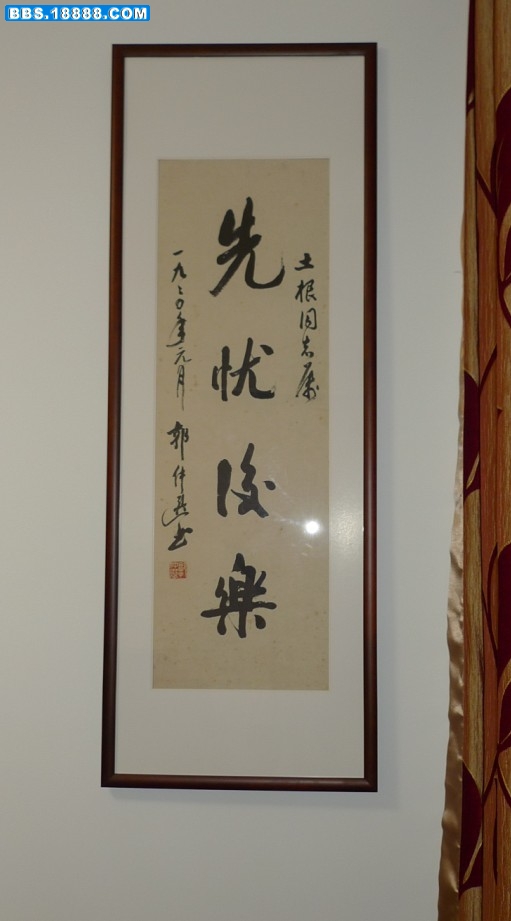 BBS.18888.COM
土根同志属
先忧後樂
一九八〇年元月
郭仲选书